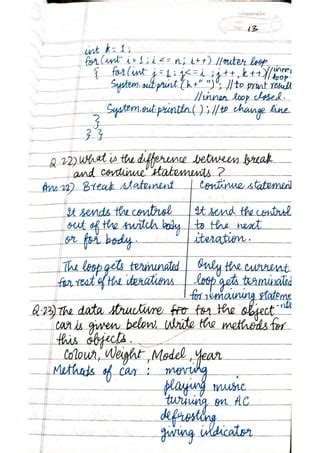 13
int k = 1;
for (int i = 1; i <= n; i++) // outer loop
{ for (int j = 1; j <= i; j++, k++) // inner loop
System.out.print (k + " "); // to print result
// inner loop closed.
System.out.println (); // to change line
}
} }
Q.22) What is the difference between break
and continue statements ?
Ans 22) Break statement
It sends the control
out of the switch body
or for body.
The loop gets terminated
for rest of the iterations
Continue statement
It send the control
to the next
iteration.
Only the current
loop gets terminated
for remaining statements
Q.23) The data structure fro for the object
car is given below. Write the methods for
this objects.
Colour, Weight, Model, Year
Methods of car : moving
playing music
turning on AC
defrosting
giving indicator